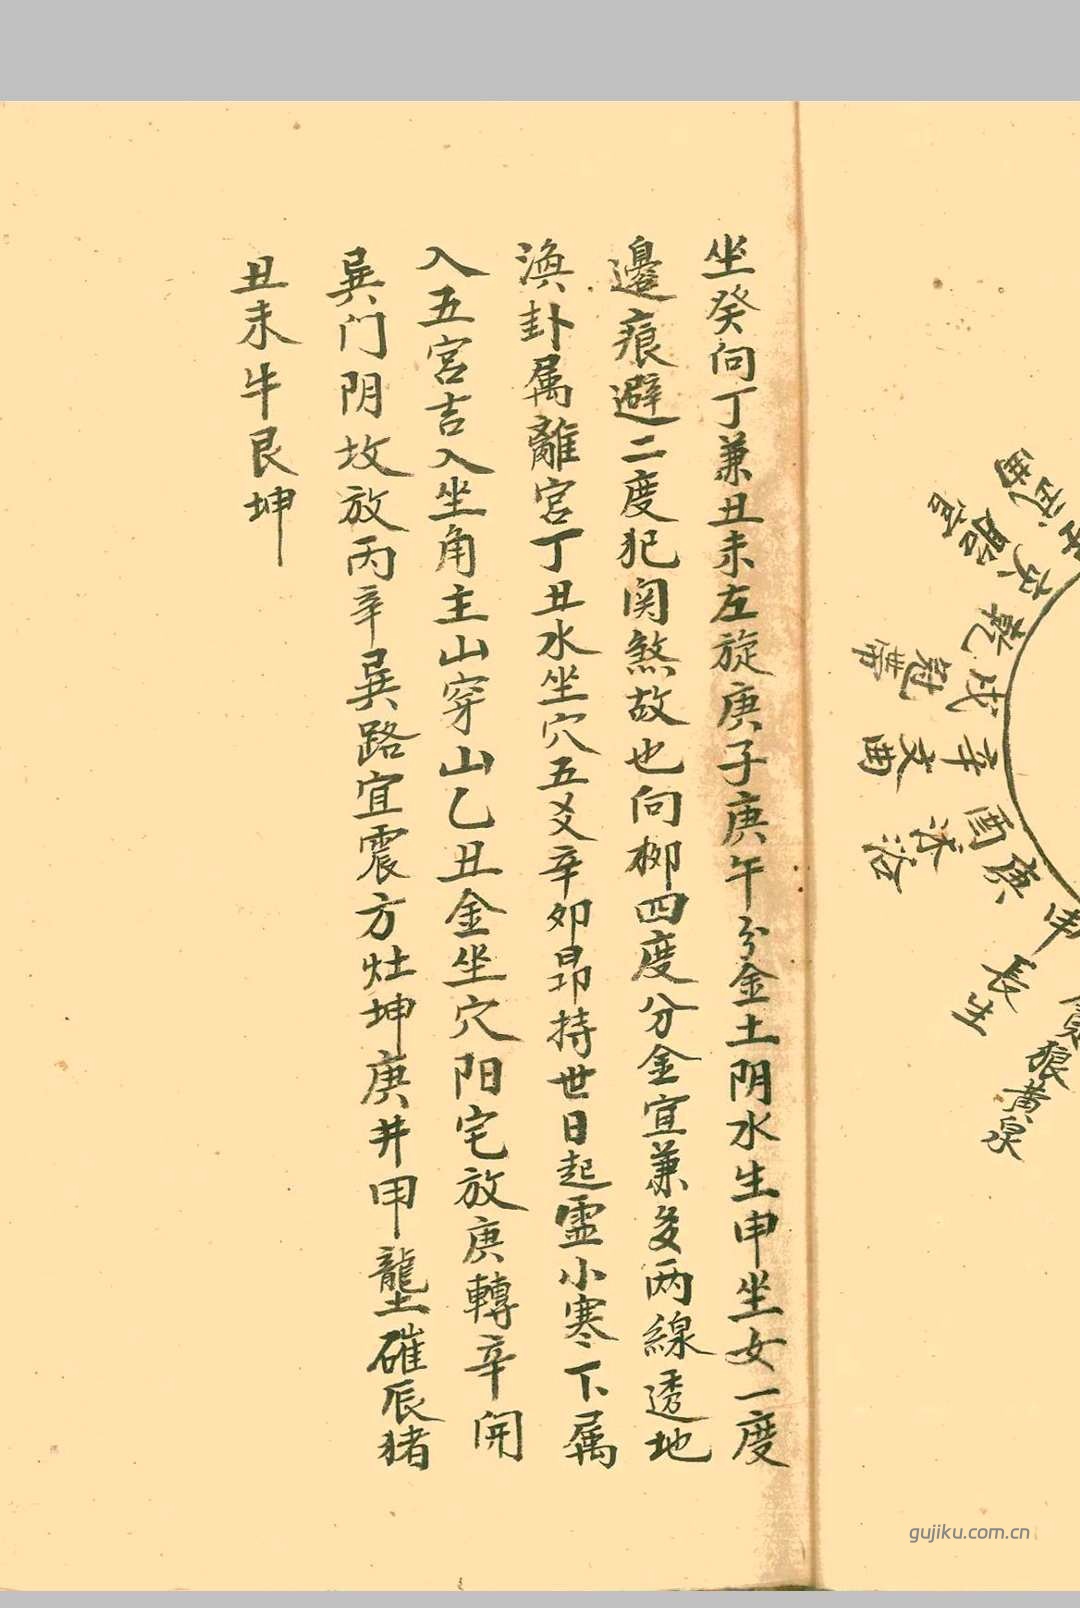 坐癸向丁兼丑未左旋庚子庚午分金土阴水生申坐女一度
邊痕避二度犯関煞故也向柳四度分金宜兼亥两線透地
渙卦属離宮丁丑水坐穴五爻辛卯昂持世日起霊小寒下属
入五宮吉入坐角主山穿山乙丑金坐穴阳宅放庚轉辛開
巽门阴坟放丙辛巽路宜震方灶坤庚井甲壟碓辰猪
丑未牛艮坤
武曲
臨官
亥
乾
冠帶
戌
文曲
辛
沐浴
酉
庚
申
長生
狼
黃泉
gujiku.com.cn